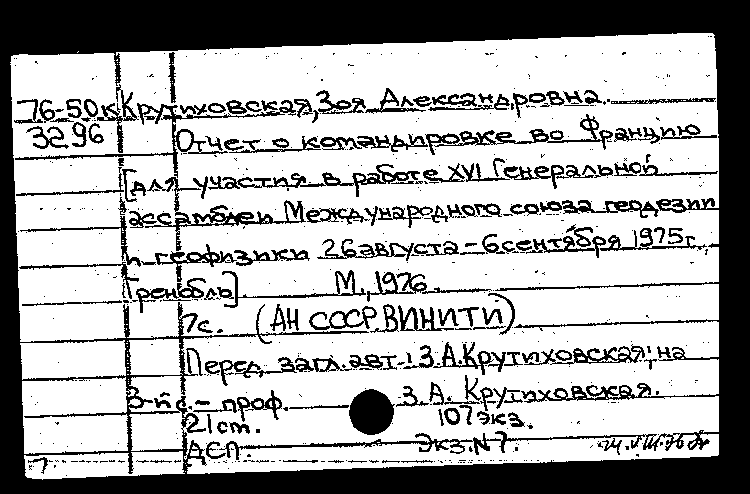 76-50к Крутиховская, Зоя Александровна.
3296 Отчет о командировке во Францию
[для участия в работе XVI Генеральной
ассамблеи Международного союза геодезии
и геофизики 26 августа - 6 сентября 1975г.,
Гренобль] М., 1976.
7с. (АН СССР. ВИНИТИ)
Перед загл. авт.: З.А.Крутиховская; на
3-й с. - проф. З.А. Крутиховская.
21 ст. 107 экз.
ДСП. Экз.N7. 24.VIII.76
7.